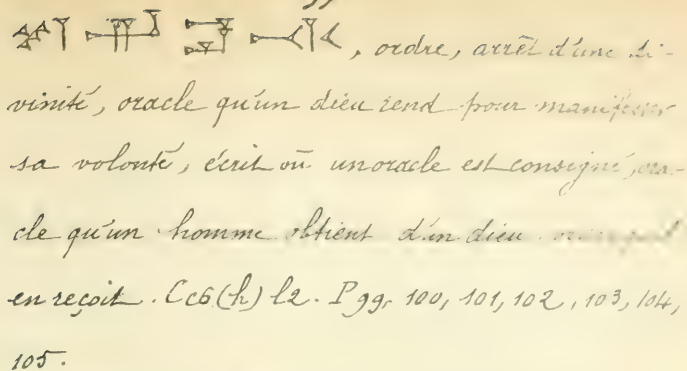 , ordre, arrêt d'une di-
vinité, oracle qu'un dieu rend pour manifester
sa volonté, écrit où un oracle est consigné, ora-
cle qu'un homme obtient d'un dieu
en reçoit. Cc6(h) l2. P 99, 100, 101, 102, 103, 104,
105.